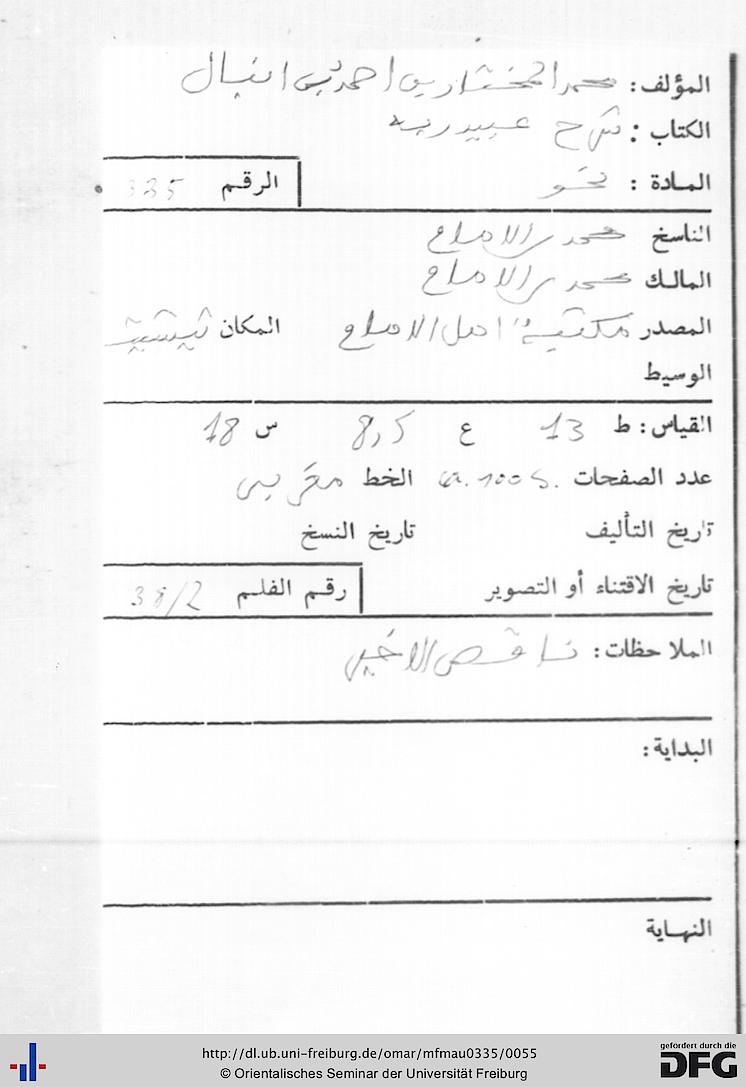 المؤلف: محمد المختار بن احمد بن انبال
الكتاب: شرح عبيد ربه
المادة: نحو
الرقم 335
الناسخ محمد بن الامام
المالك محمد بن الامام
المصدر مكتبة اهل الامام المكان تيشيت
الوسيط
القياس: ط 13 ع 8,5 س 18
عدد الصفحات 100 S. الخط مغربي
تاريخ التأليف تاريخ النسخ
تاريخ الاقتناء أو التصوير
رقم الفلم 38/2
الملاحظات: ناقص الاخير
البداية:
النهاية
http://dl.ub.uni-freiburg.de/omar/mfmau0335/0055
© Orientalisches Seminar der Universität Freiburg
gefördert durch die
DFG